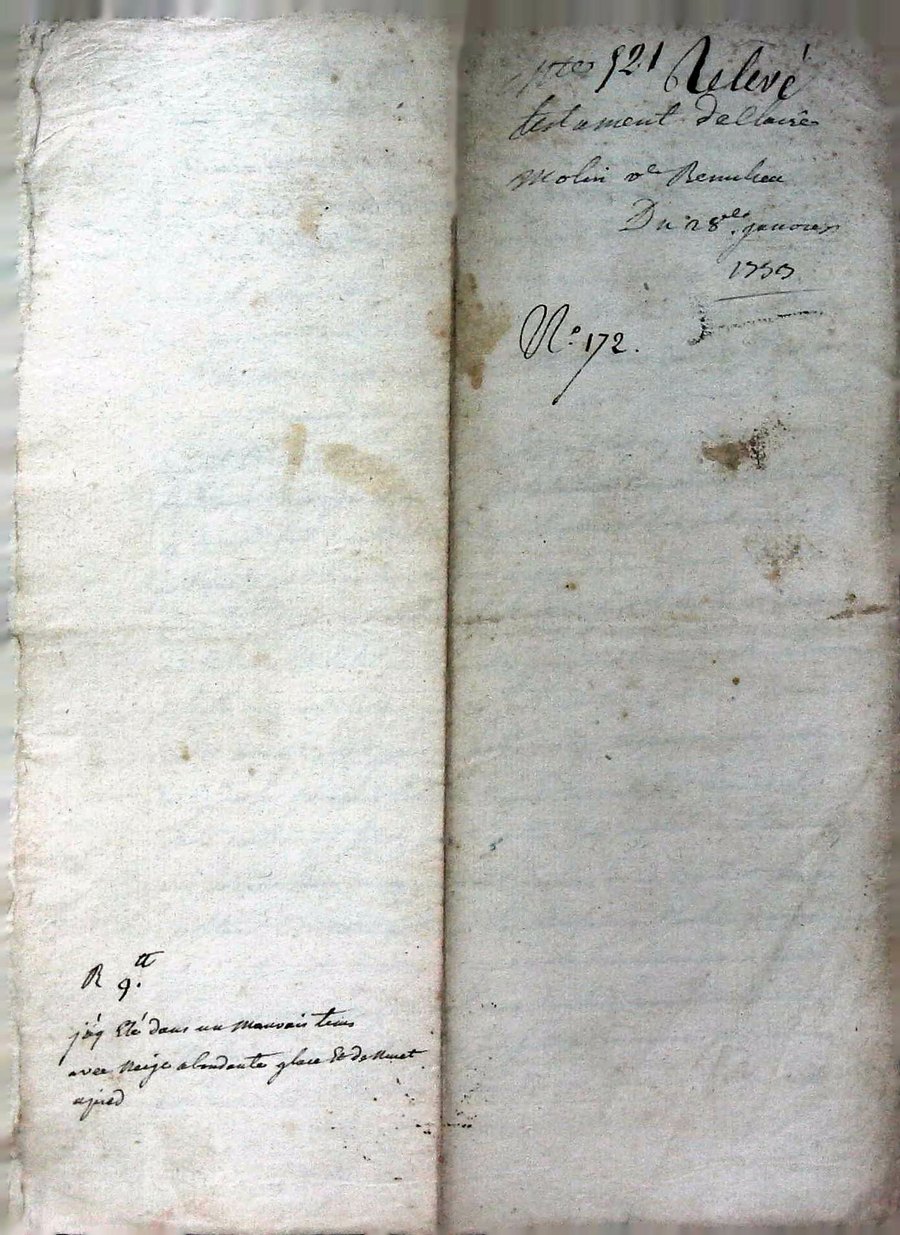 521 Relevé
testament de Claire
Molin v.e Beaulieu
Du 28.e janvier
N.o 172.
R 9.tt
j'éy Eté dans un Mauvais tems
avec Neije abondante glace Et de Nuet
apied